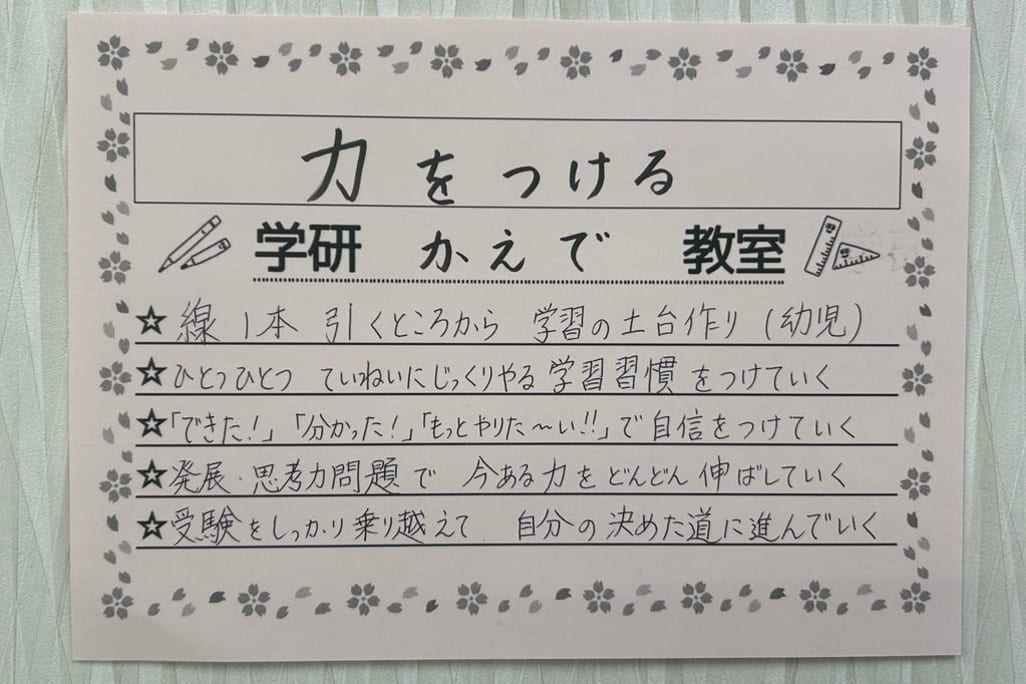 力をつける
学研 かえで 教室
☆線1本 引くところから 学習の土台作り(幼児)
☆ひとつひとつ ていねいにじっくりやる学習習慣をつけていく
☆「できた!」「分かった!」「もっとやりた〜い!!」で自信をつけていく
☆発展・思考力問題で 今ある力をどんどん伸ばしていく
☆受験をしっかり乗り越えて 自分の決めた道に進んでいく